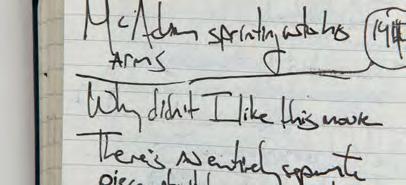 McAdam sprinting into his
ARMS
Why didn't I like this movie
There's an entirely separate
piece